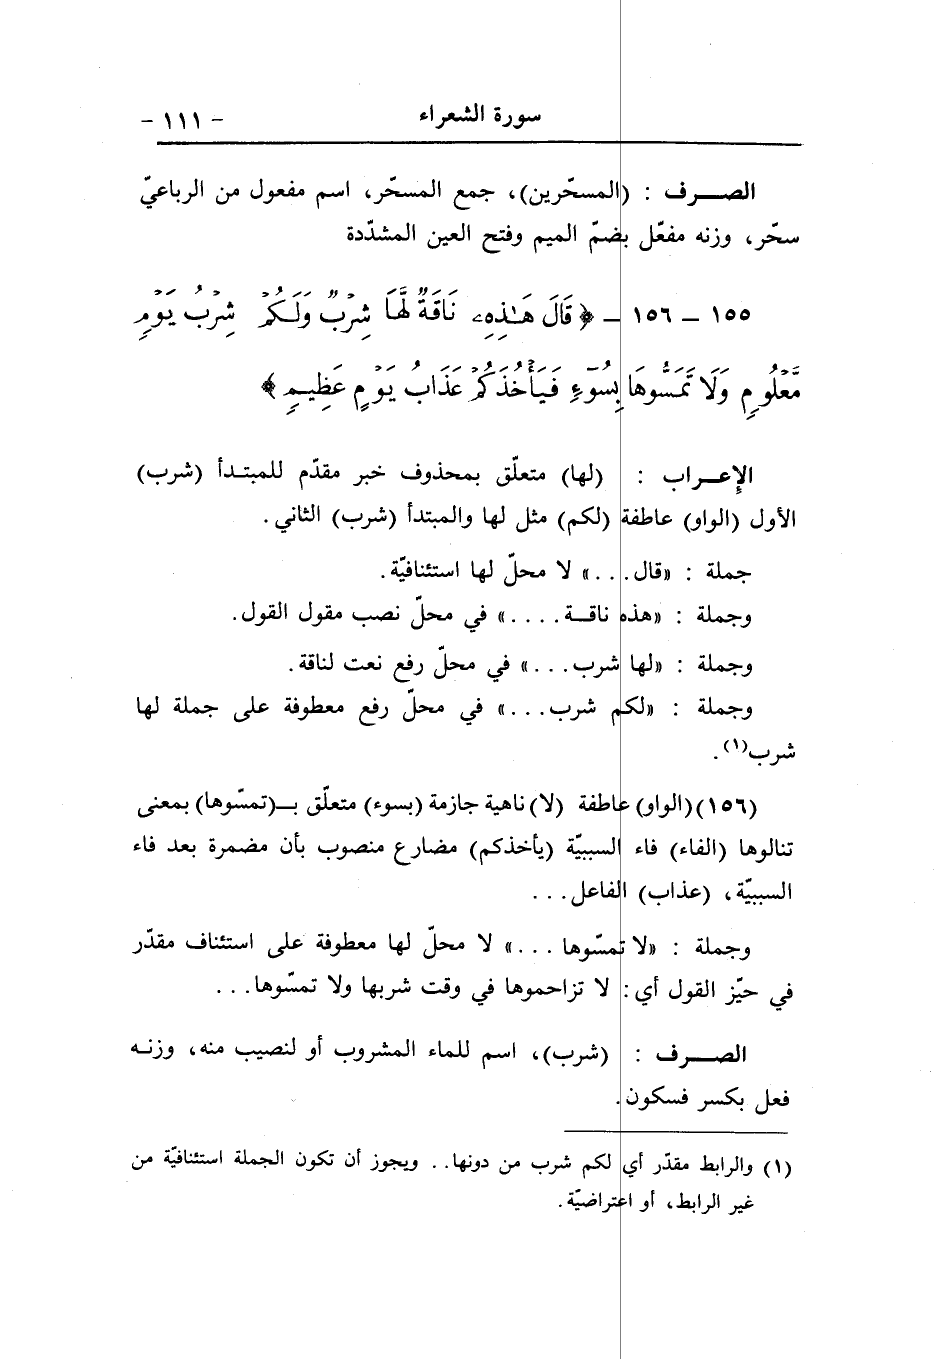 سورة الشعراء - ١١١ -
الصـــرف : (المسحّرين)، جمع المسحّر، اسم مفعول من الرباعيّ
سحّر، وزنه مفعّل بضمّ الميم وفتح العين المشدّدة
١٥٥ - ١٥٦ - ﴿ قَالَ هَـٰذِهِۦ نَاقَةٌ لَّهَا شِرْبٌ وَلَكُمْ شِرْبُ يَوْمٍ
مَّعْلُومٍ وَلَا تَمَسُّوهَا بِسُوٓءٍ فَيَأْخُذَكُمْ عَذَابُ يَوْمٍ عَظِيمٍ ﴾
الإعـراب : (لها) متعلّق بمحذوف خبر مقدّم للمبتـدأ (شرب)
الأول (الواو) عاطفة (لكم) مثل لها والمبتدأ (شرب) الثاني.
جملة : «قال...» لا محلّ لها استئنافيّة.
وجملة : «هذه ناقـة....» في محلّ نصب مقول القول.
وجملة : «لها شرب...» في محلّ رفع نعت لناقة.
وجملة : «لكم شرب...» في محلّ رفع معطوفة على جملة لها
شرب(١).
(١٥٦)(الواو) عاطفة (لا) ناهية جازمة (بسوء) متعلّق بـ(تمسّوها) بمعنى
تنالوها (الفاء) فاء السببيّة (يأخذكم) مضارع منصوب بأن مضمرة بعد فاء
السببيّة، (عذاب) الفاعل...
وجملة : «لا تمسّوها ...» لا محلّ لها معطوفة على استئناف مقدّر
في حيّز القول أي: لا تزاحموها في وقت شربها ولا تمسّوها...
الصـــرف : (شرب)، اسم للماء المشروب أو لنصيب منه، وزنـه
فعل بكسر فسكون.
(١) والرابط مقدّر أي لكم شرب من دونها.. ويجوز أن تكون الجملة استئنافيّة من
غير الرابط، أو اعتراضيّة.